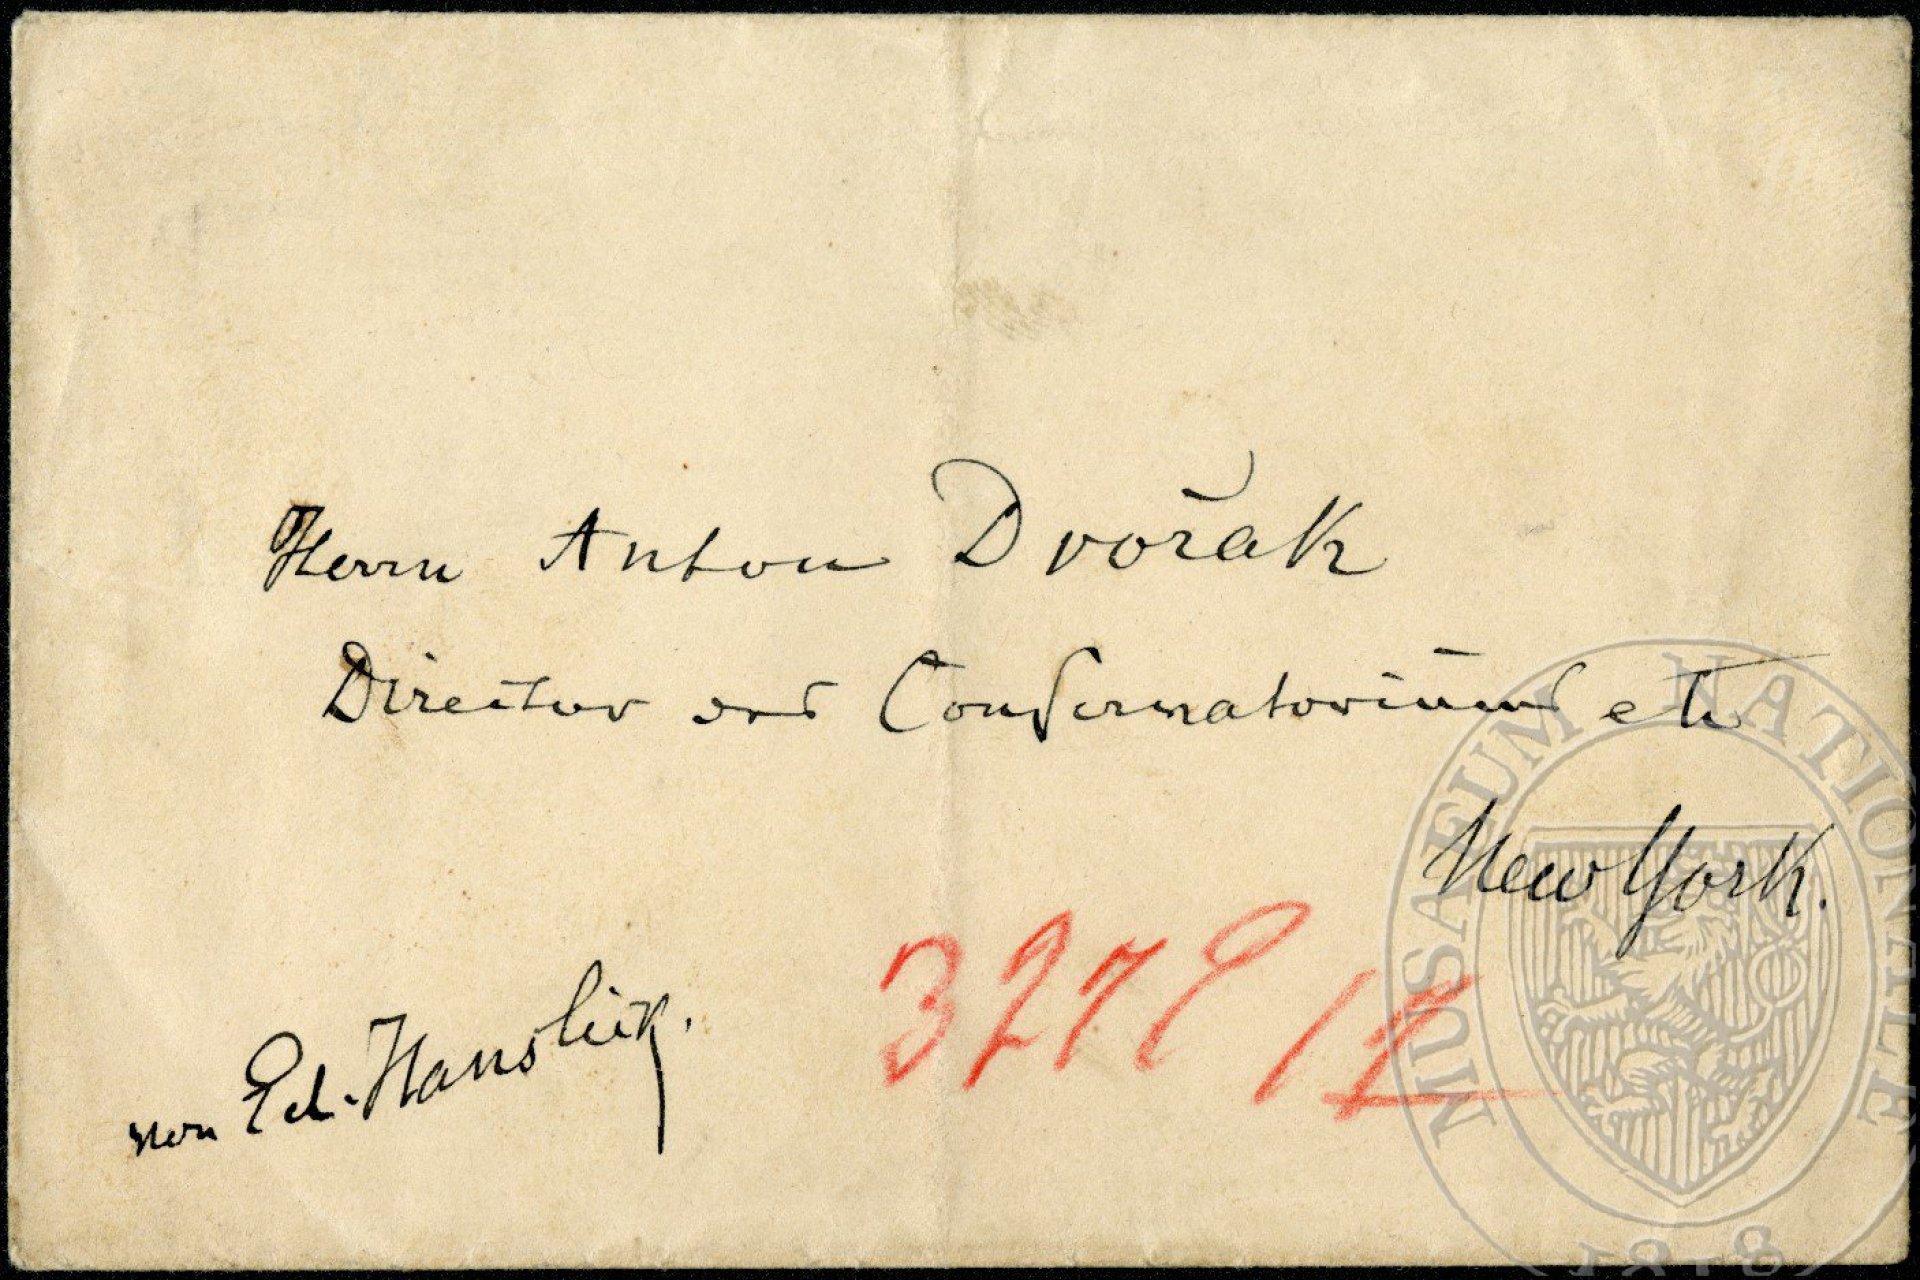 Herrn Anton Dvořak
Director des Conservatoriums etc
New York.
von Ed. Hanslick.
MUSAEUM NATIONALE
1818